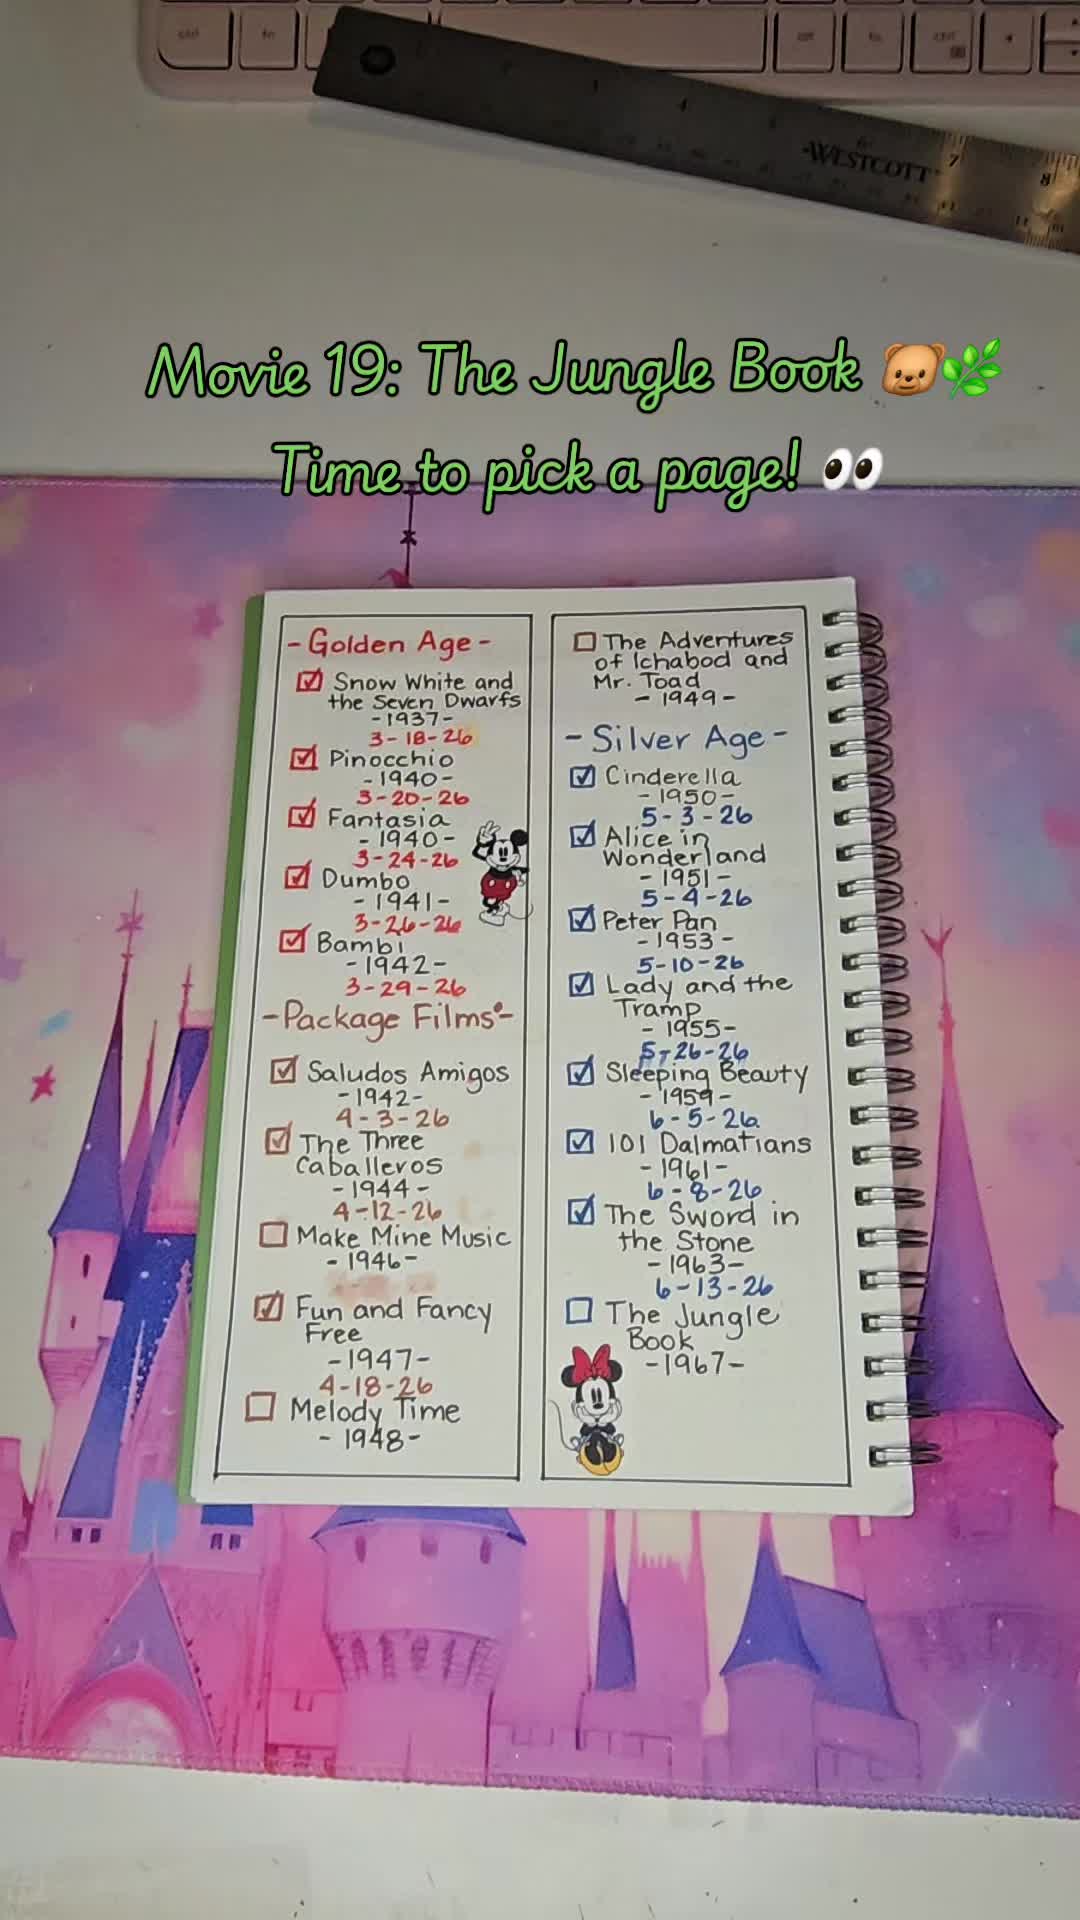 WESTCOTT
6
7
8
Movie 19: The Jungle Book 🐻🌿
Time to pick a page! 👀
- Golden Age -
☑ Snow White and
the Seven Dwarfs
- 1937 -
3-18-26
☑ Pinocchio
- 1940 -
3-20-26
☑ Fantasia
- 1940 -
3-24-26
☑ Dumbo
- 1941 -
3-26-26
☑ Bambi
- 1942 -
3-29-26
- Package Films -
☑ Saludos Amigos
- 1942 -
4-3-26
☑ The Three
Caballeros
- 1944 -
4-12-26
☐ Make Mine Music
- 1946 -
☑ Fun and Fancy
Free
- 1947 -
4-18-26
☐ Melody Time
- 1948 -
☐ The Adventures
of Ichabod and
Mr. Toad
- 1949 -
- Silver Age -
☑ Cinderella
- 1950 -
5-3-26
☑ Alice in
Wonderland
- 1951 -
5-4-26
☑ Peter Pan
- 1953 -
5-10-26
☑ Lady and the
Tramp
- 1955 -
5-26-26
☑ Sleeping Beauty
- 1959 -
6-5-26
☑ 101 Dalmatians
- 1961 -
6-8-26
☑ The Sword in
the Stone
- 1963 -
6-13-26
☐ The Jungle
Book
- 1967 -